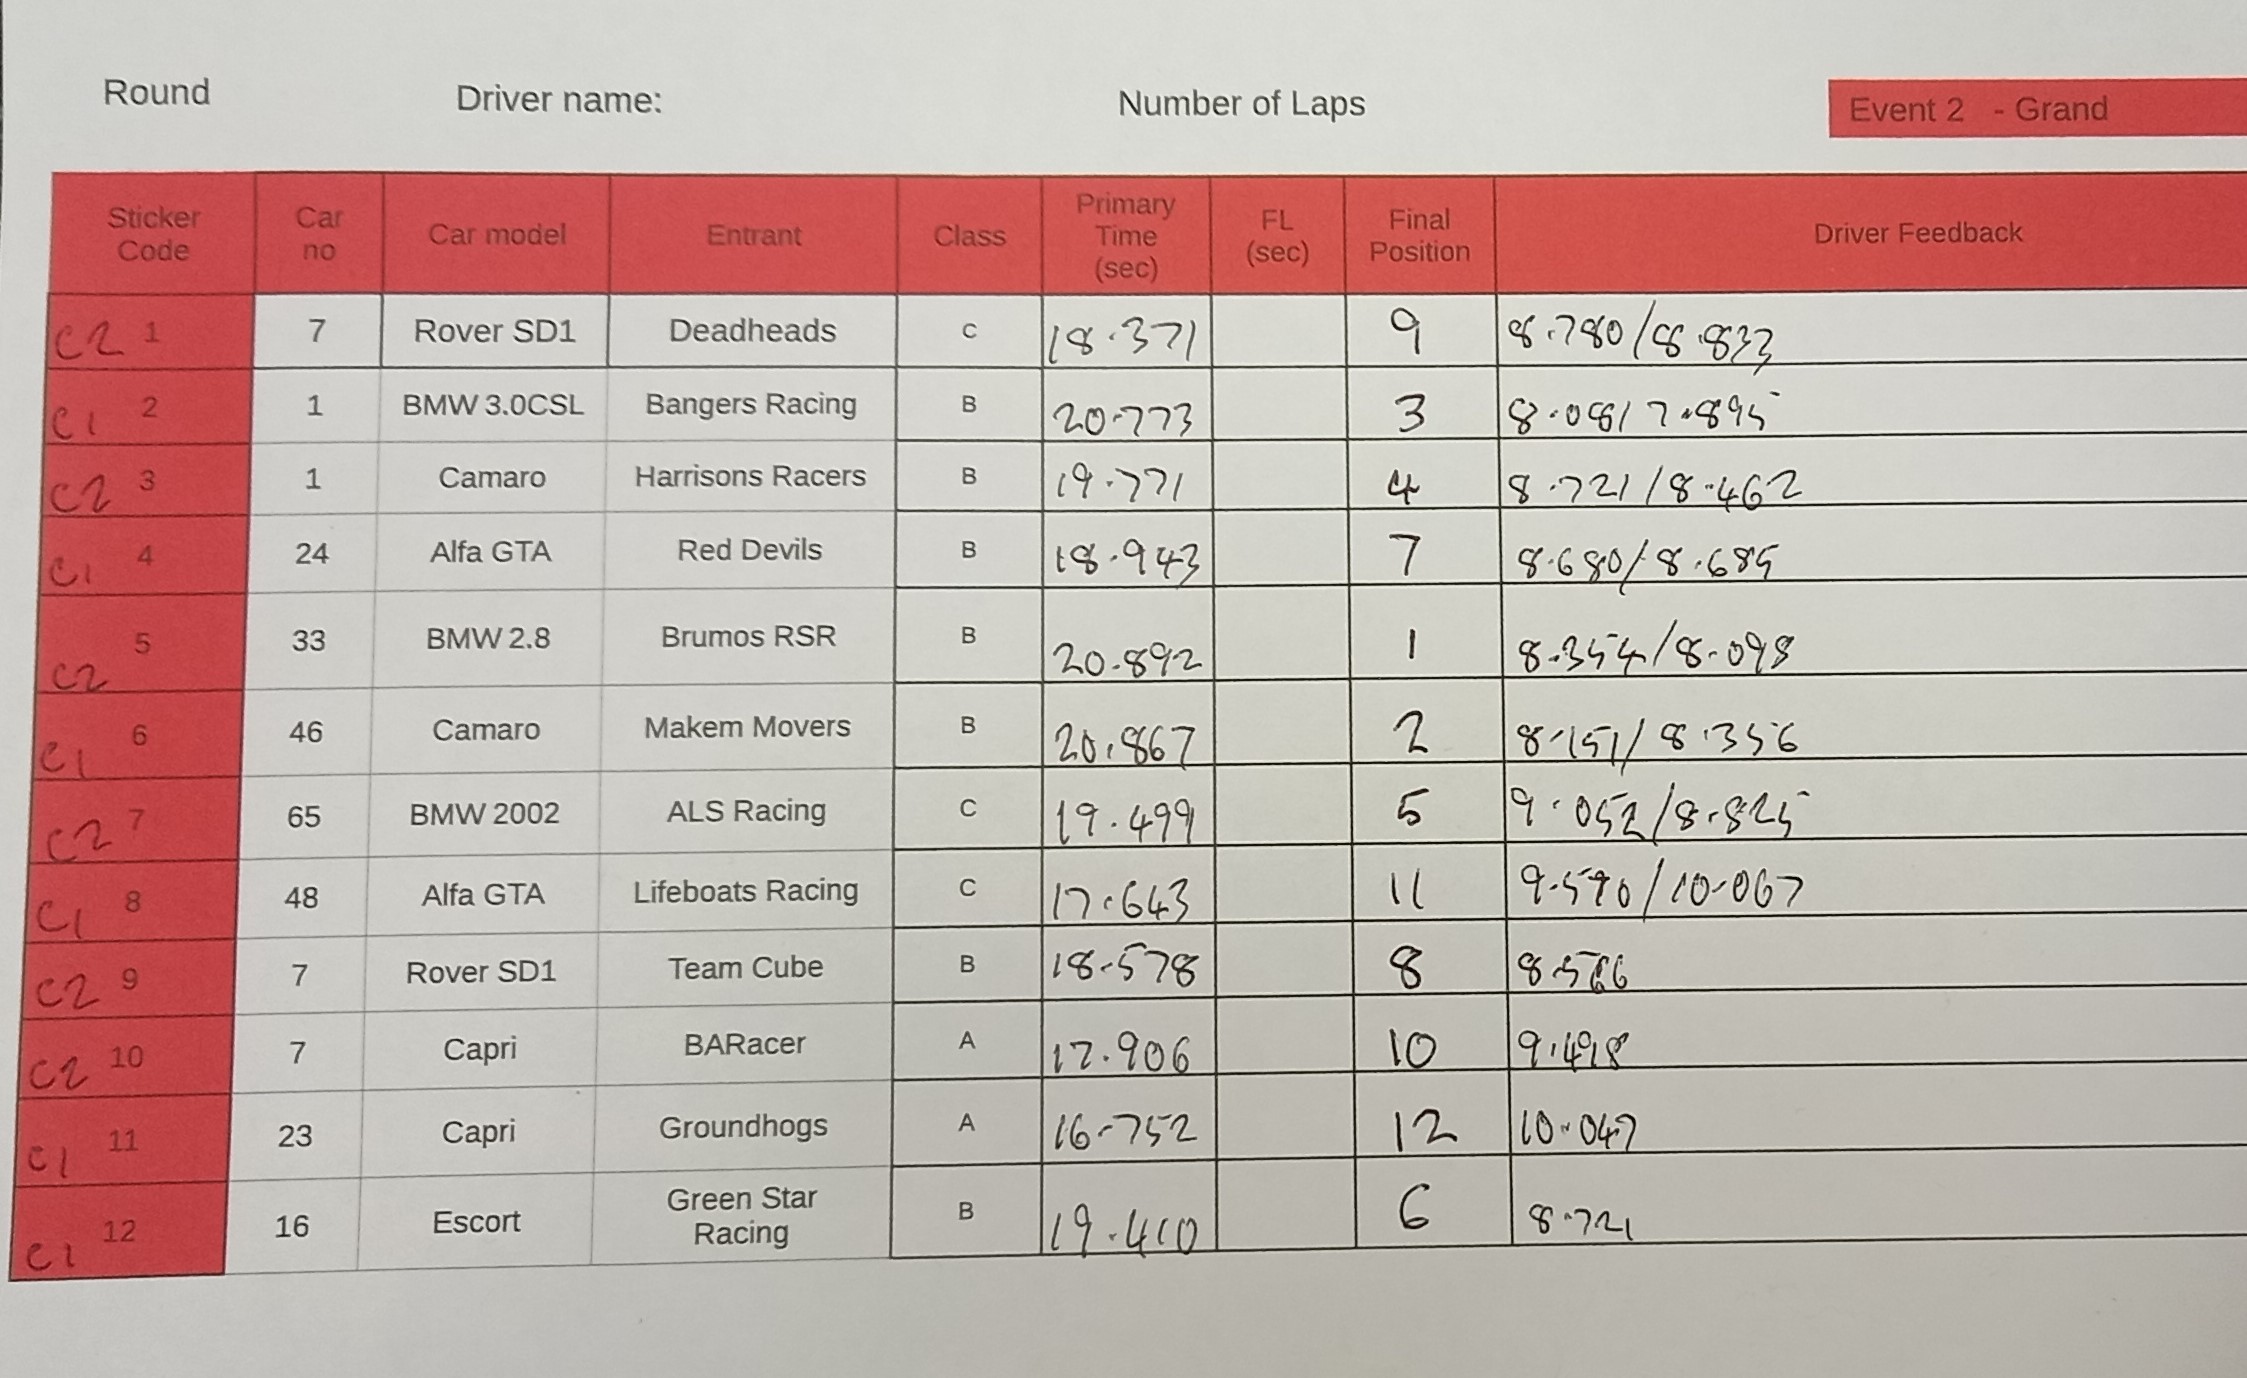 Round Driver name: Number of Laps Event 2 - Grand
Sticker Code Car no Car model Entrant Class Primary Time (sec) FL (sec) Final Position Driver Feedback
C2 1 7 Rover SD1 Deadheads C 18.371 9 8.780/8.833
C1 2 1 BMW 3.0CSL Bangers Racing B 20.773 3 8.08/7.895
C2 3 1 Camaro Harrisons Racers B 19.771 4 8.721/8.462
C1 4 24 Alfa GTA Red Devils B 18.943 7 8.680/8.685
C2 5 33 BMW 2.8 Brumos RSR B 20.892 1 8.354/8.098
C1 6 46 Camaro Makem Movers B 20.867 2 8.151/8.356
C2 7 65 BMW 2002 ALS Racing C 19.499 5 9.052/8.825
C1 8 48 Alfa GTA Lifeboats Racing C 17.643 11 9.590/10.067
C2 9 7 Rover SD1 Team Cube B 18.578 8
C2 10 7 Capri BARacer A 17.906 10 9.498
C1 11 23 Capri Groundhogs A 16.752 12 10.047
C1 12 16 Escort Green Star Racing B 19.410 6 8.721